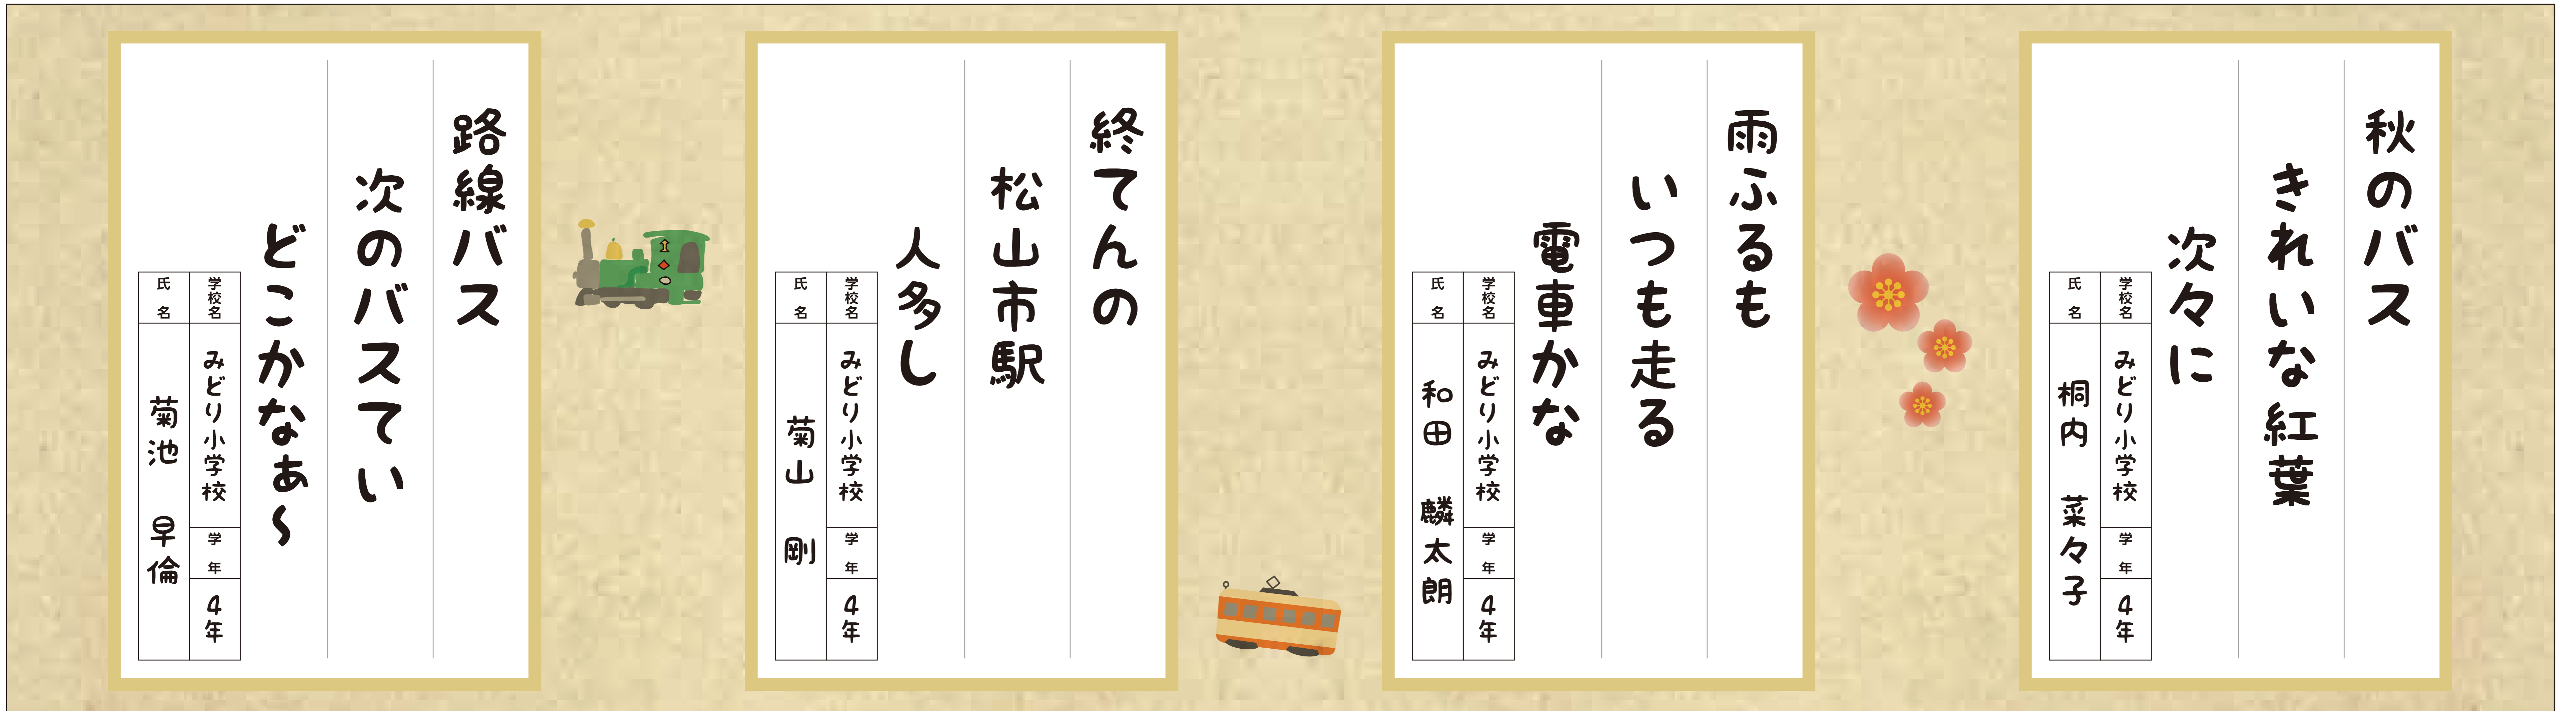 秋のバス
きれいな紅葉
次々に
学校名 みどり小学校 学年 4年
氏名 桐内 菜々子
雨ふるも
いつも走る
電車かな
学校名 みどり小学校 学年 4年
氏名 和田 麟太朗
終てんの
松山市駅
人多し
学校名 みどり小学校 学年 4年
氏名 菊山 剛
路線バス
次のバスてい
どこかなぁ〜
学校名 みどり小学校 学年 4年
氏名 菊池 早倫